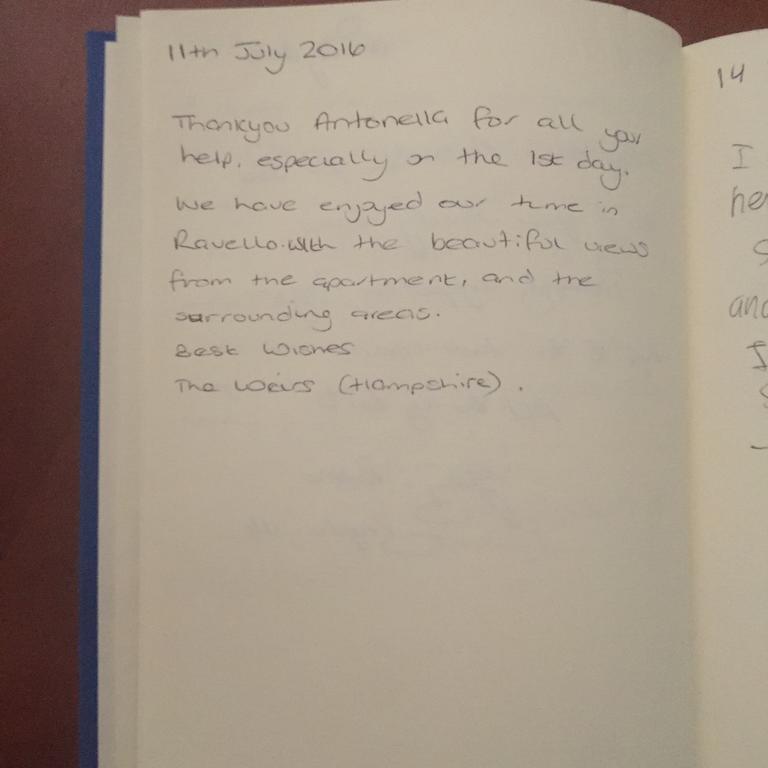 11th July 2016
Thankyou Antonella for all your
help, especially on the 1st day.
We have enjoyed our time in
Ravello. With the beautiful views
from the apartment, and the
surrounding areas.
Best Wishes
The Weirs (Hampshire).
14
I
he
and